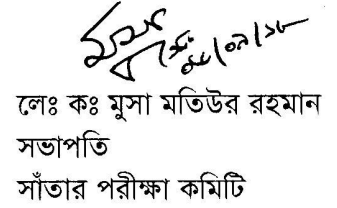 লেঃ কঃ মুসা মতিউর রহমান
সভাপতি
সাঁতার পরীক্ষা কমিটি